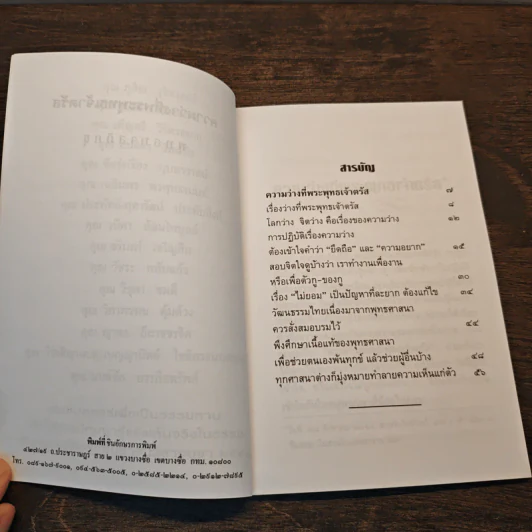 พิมพ์ที่ ชินอักษรการพิมพ์
๔๒๗/๑๕ ถ.ประชาราษฎร์ สาย ๒ แขวงบางซื่อ เขตบางซื่อ กทม. ๑๐๘๐๐
โทร. ๐๘๑-๑๖๗-๕๐๐๑, ๐๙๔-๕๖๓-๕๐๐๕, ๐-๒๕๘๕-๒๒๑๔, ๐-๒๙๑๒-๗๘๕๕
สารบัญ
ความว่างที่พระพุทธเจ้าตรัส ๗
เรื่องว่างที่พระพุทธเจ้าตรัส ๘
โลกว่าง จิตว่าง คือเรื่องของความว่าง ๑๒
การปฏิบัติเรื่องความว่าง
ต้องเข้าใจคำว่า "ยึดถือ" และ "ความอยาก" ๑๕
สอบจิตใจดูบ้างว่า เราทำงานเพื่องาน
หรือเพื่อตัวกู-ของกู ๓๐
เรื่อง "ไม่ยอม" เป็นปัญหาที่ละยาก ต้องแก้ไข ๓๔
วัฒนธรรมไทยเนื่องมาจากพุทธศาสนา
ควรสั่งสมอบรมไว้ ๔๔
พึงศึกษาเนื้อแท้ของพุทธศาสนา
เพื่อช่วยตนเองพ้นทุกข์ แล้วช่วยผู้อื่นบ้าง ๔๘
ทุกศาสนาต่างก็มุ่งหมายทำลายความเห็นแก่ตัว ๕๖